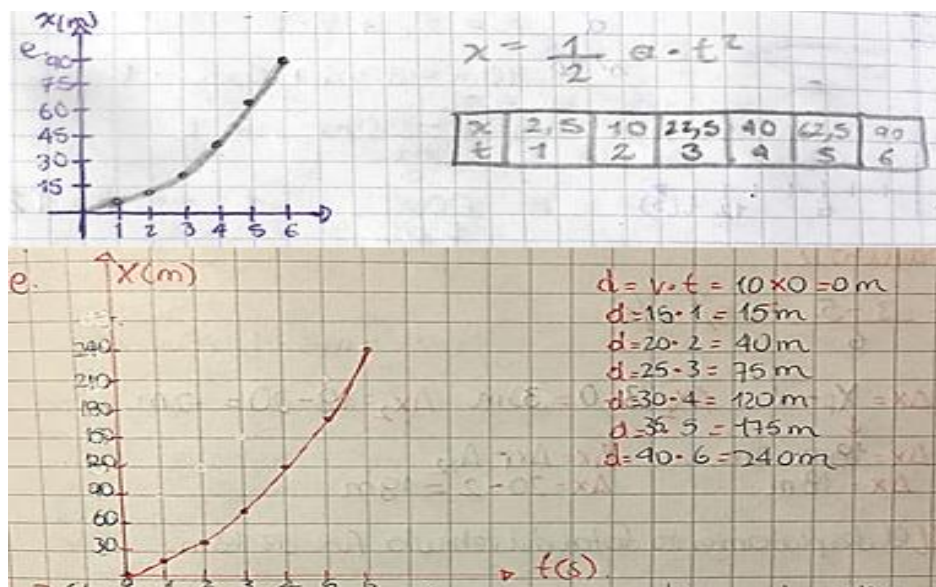 x(m)
e.
90
75
60
45
30
15
1 2 3 4 5 6
x = 1/2 a · t²
x 2,5 10 22,5 40 62,5 90
t 1 2 3 4 5 6
e. X(m)
240
210
180
150
120
90
60
30
t(s)
d = v · t = 10 x 0 = 0 m
d = 15 · 1 = 15 m
d = 20 · 2 = 40 m
d = 25 · 3 = 75 m
d = 30 · 4 = 120 m
d = 35 5 = 175 m
d = 40 · 6 = 240 m